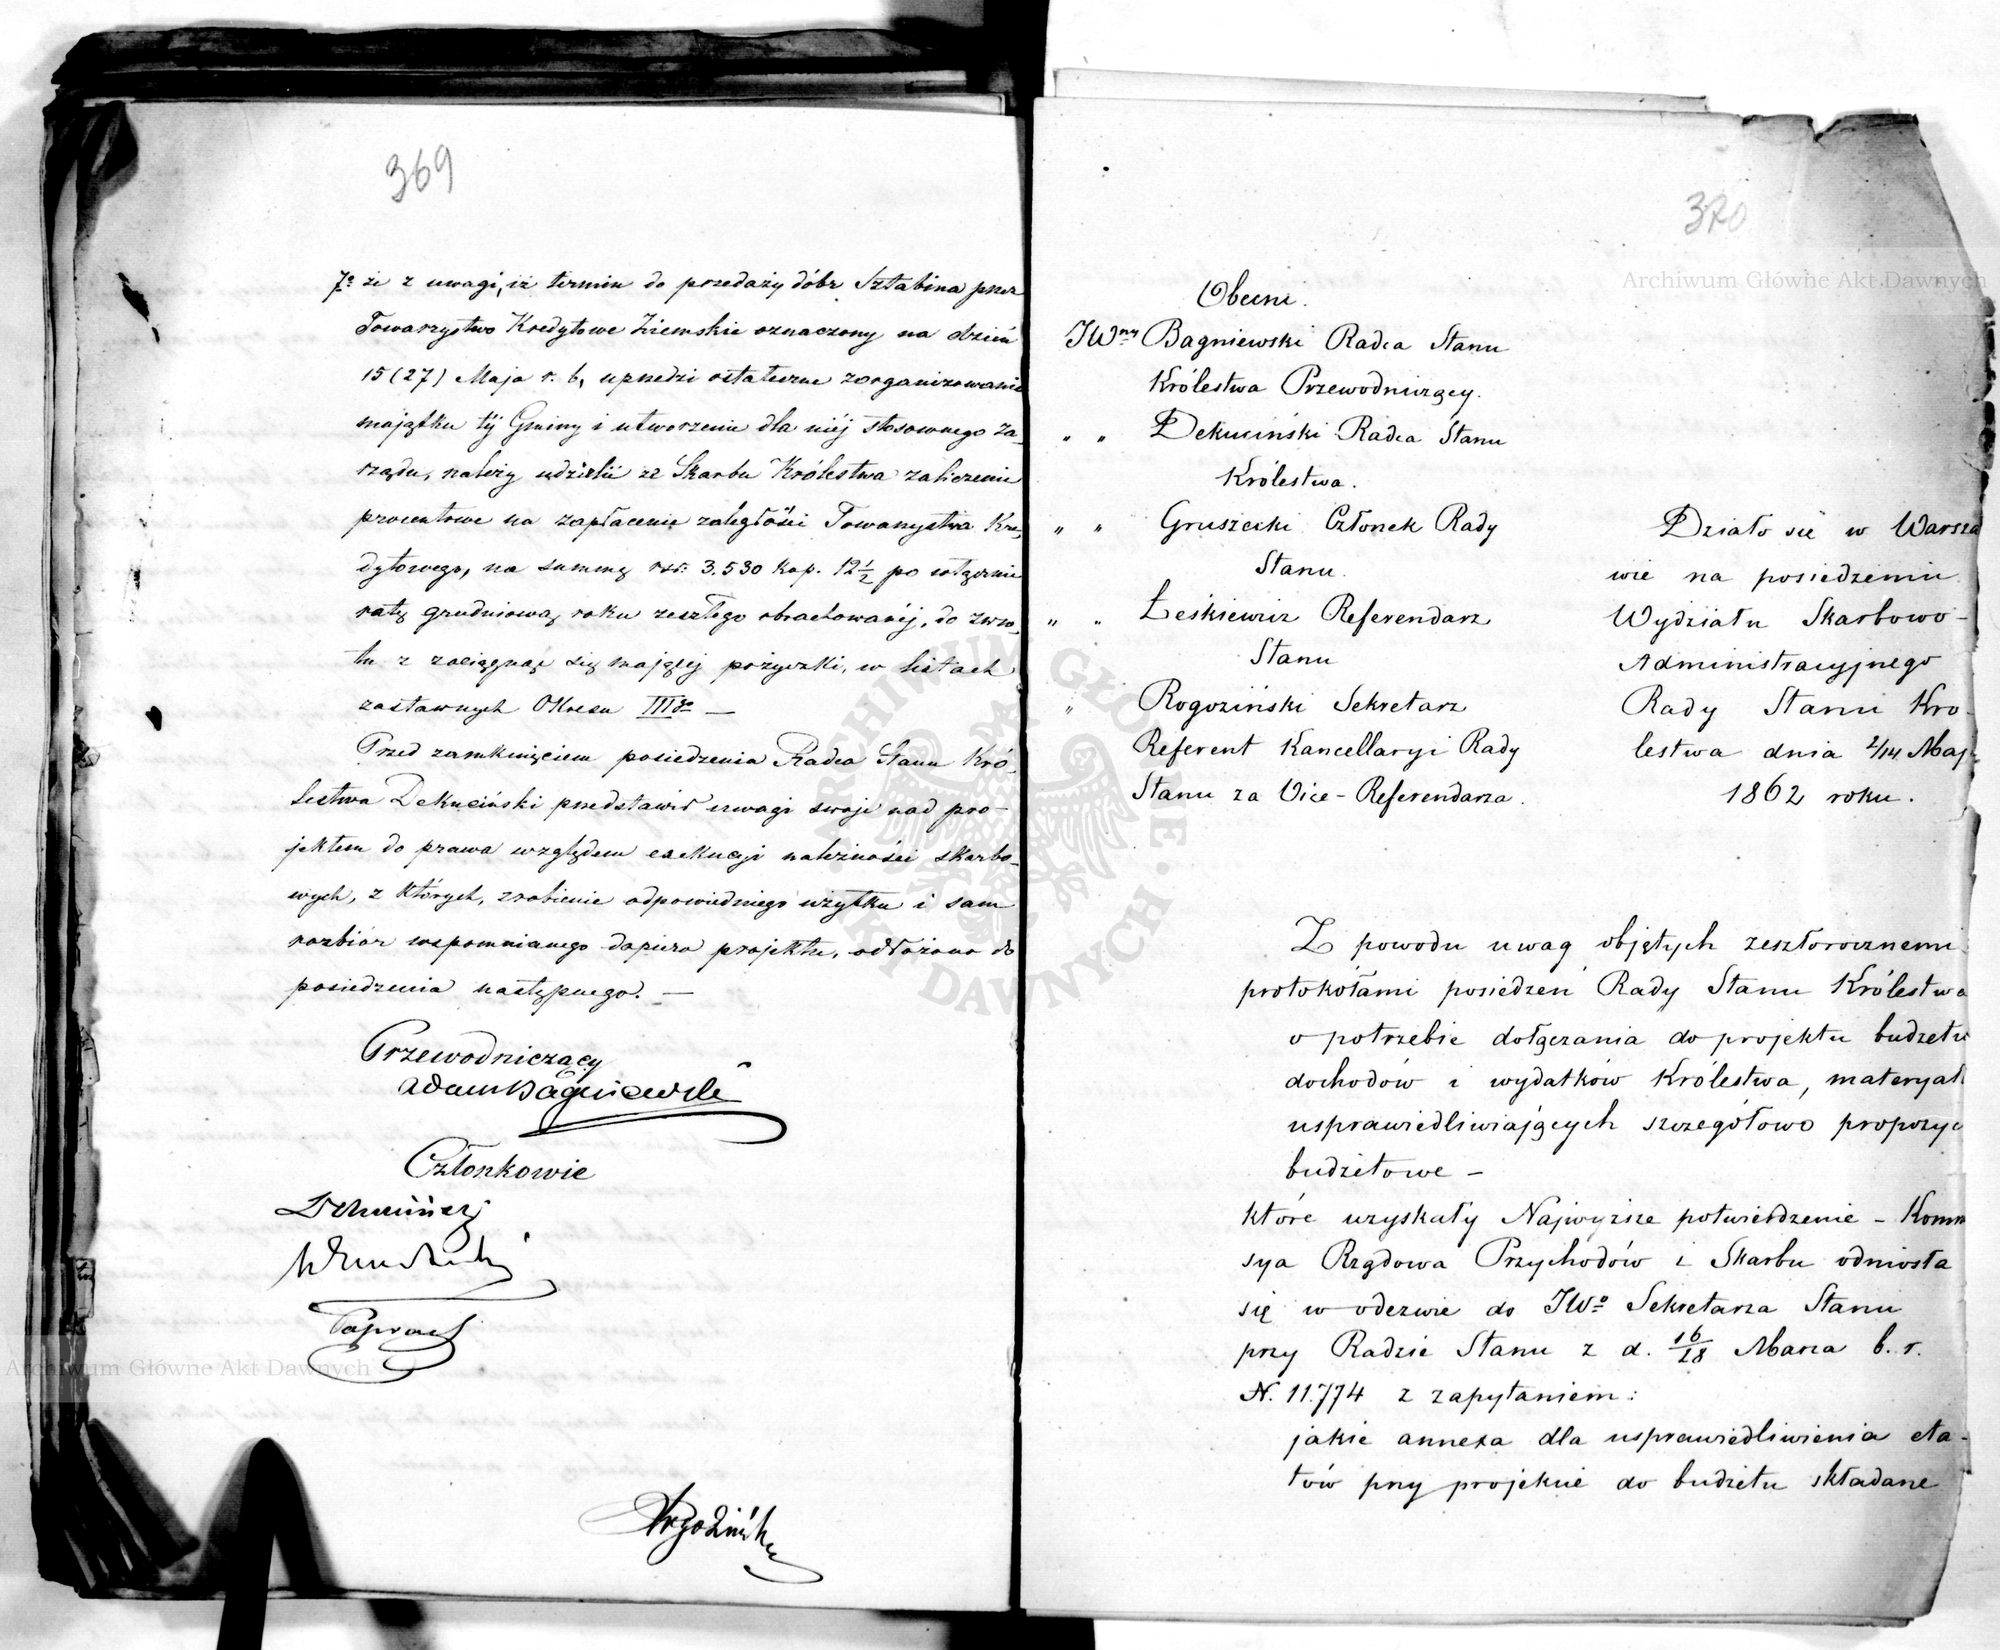 369
7º że z uwagi, iż termin do przedaży dóbr Sztabina przez
Towarzystwo Kredytowe Ziemskie oznaczony na dzień
15 (27) Maja r. b. uprzedzi ostateczne zorganizowanie
majątku téj Gminy i utworzenie dla niéj stosownego Za-
rządu, należy udzielić ze Skarbu Królestwa zaliczenie
procentowe na zapłacenie zaległości Towarzystwa Kre-
dytowego, na summę rsr. 3.530 kop. 12½ po włącznie
ratę grudniową roku zeszłego obrachowanéj, do zwro-
tu z zaciągnąć się mającéj pożyczki, w listach
zastawnych Okresu IIIgo —
Przed zamknięciem posiedzenia Radca Stanu Kró-
lestwa Dekuciński przedstawił uwagi swoje nad pro-
jektem do prawa względem exekucyi należności skarbo-
wych, z których, zrobienie odpowiedniego użytku i sam
rozbiór wspomnianego dopiero projektu, odłożono do
posiedzenia następnego. —
Przewodniczący
Adam Bagniewski
Członkowie
Dekuciński
Rogoziński
370
Obecni.
JWny Bagniewski Radca Stanu
Królestwa Przewodniczący.
" " Dekuciński Radca Stanu
Królestwa.
" " Gruszecki Członek Rady
Stanu.
" " Leśkiewicz Referendarz
Stanu
" Rogoziński Sekretarz
Referent Kancellaryi Rady
Stanu za Vice-Referendarza.
Działo się w Warsza
wie na posiedzeniu
Wydziału Skarbowo-
Administracyjnego
Rady Stanu Kró-
lestwa dnia 2/14 Maja
1862 roku.
Z powodu uwag objętych zeszłorocznemi
protokółami posiedzeń Rady Stanu Królestwa
o potrzebie dołączania do projektu budżetu
dochodów i wydatków Królestwa, materyał
usprawiedliwiających szczegółowo propozyc
budżetowe —
które uzyskały Najwyższe potwierdzenie — Komm
sya Rządowa Przychodów i Skarbu odniosła
się w odezwie do JWo Sekretarza Stanu
przy Radzie Stanu z d. 16/28 Marca b. r.
N. 11.774 z zapytaniem:
jakie annexa dla usprawiedliwienia eta-
tów przy projekcie do budżetu składane
Archiwum Główne Akt Dawnych
Archiwum Główne Akt Dawnych
ARCHIWUM GŁÓWNE AKT DAWNYCH